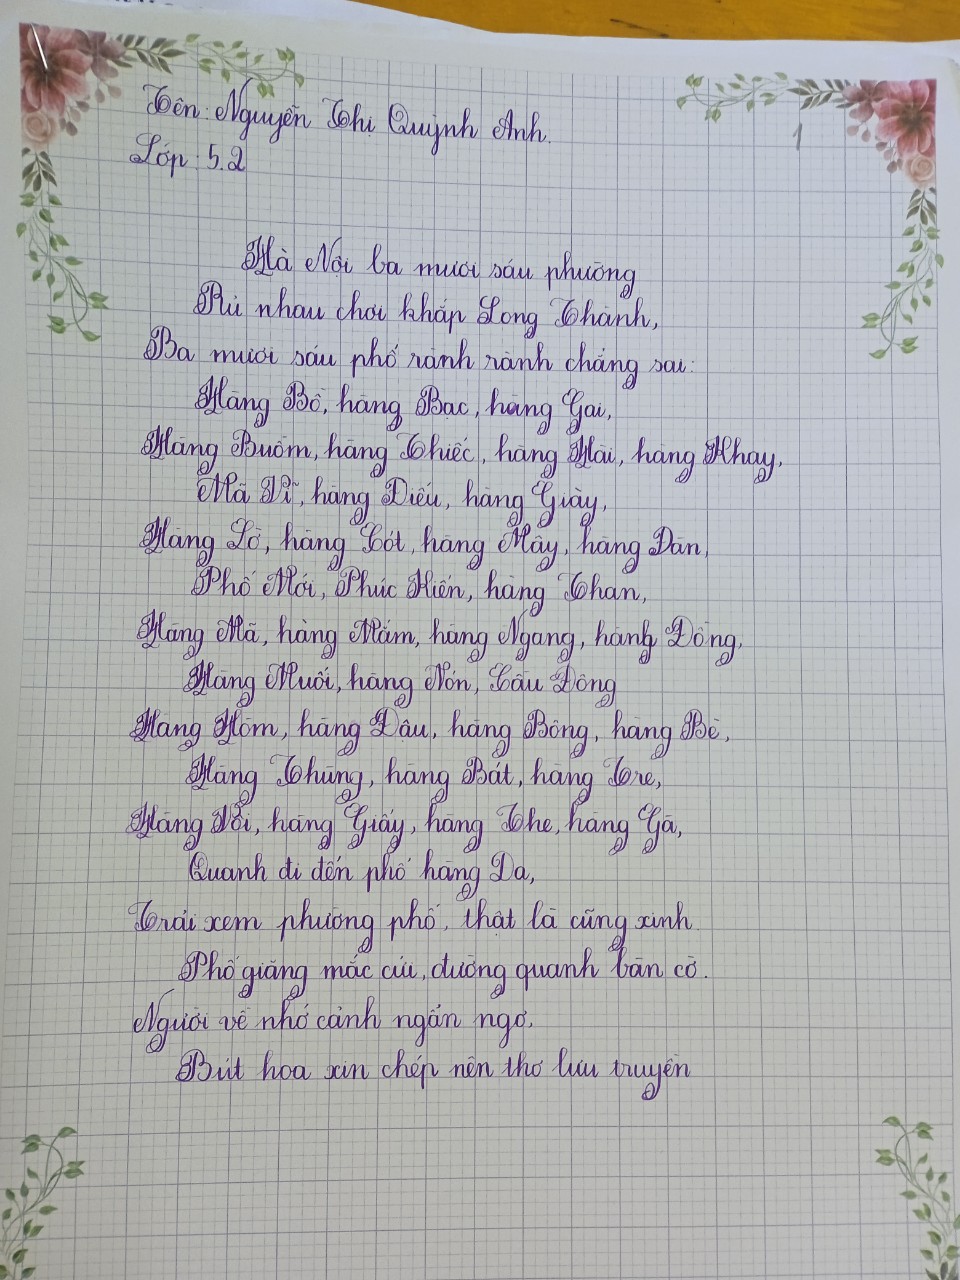 Tên: Nguyễn Thị Quỳnh Anh.
1
Lớp: 5.2
Hà Nội ba mươi sáu phường
Rủ nhau chơi khắp Long Thành,
Ba mươi sáu phố rành rành chẳng sai:
Hàng Bồ, hàng Bạc, hàng Gai,
Hàng Buồm, hàng Thiếc, hàng Hài, hàng Khay,
Mã Vĩ, hàng Điếu, hàng Giày,
Hàng Lờ, hàng Cót, hàng Mây, hàng Đàn,
Phố Mới, Phúc Kiến, hàng Than,
Hàng Mã, hàng Mắm, hàng Ngang, hàng Đồng,
Hàng Muối, hàng Nón, Cầu Đông
Hàng Hòm, hàng Đậu, hàng Bông, hàng Bè,
Hàng Thùng, hàng Bát, hàng Tre,
Hàng Vôi, hàng Giấy, hàng The, hàng Gà,
Quanh đi đến phố hàng Da,
Trải xem phường phố, thật là cũng xinh.
Phố giăng mắc cửi, đường quanh bàn cờ.
Người về nhớ cảnh ngẩn ngơ,
Bút hoa xin chép nên thơ lưu truyền